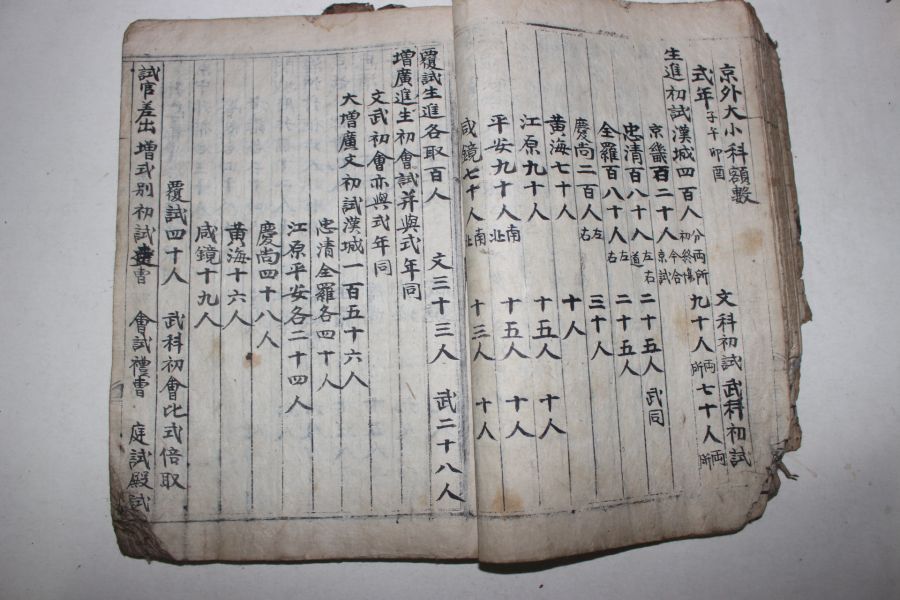 京外大小科額數
式年 子午卯酉 文科初試 武科初試
生進初試漢城四百人 分兩所 初終場 九十人 兩所 七十人 兩所
京畿百二十人 京試 今合
忠清百八十人 左右道 二十五人 武同
全羅百八十人 左右 二十五人
慶尚二百人 左右 三十人
黃海七十人 十人
江原九十人 十五人 十人
平安九十人 南北 十五人 十人
咸鏡七十人 南北 十三人 十人
覆試生進各取百人 文三十三人 武二十八人
增廣進生初會試并與式年同
文武初會亦與式年同
大增廣文初試漢城一百五十六人
忠清全羅各四十人
江原平安各二十四人
慶尚四十八人
黃海十六人
咸鏡十九人
覆試四十人 武科初會比式倍取
試官差出 增式別初試 曺 會試禮曺 庭試殿試